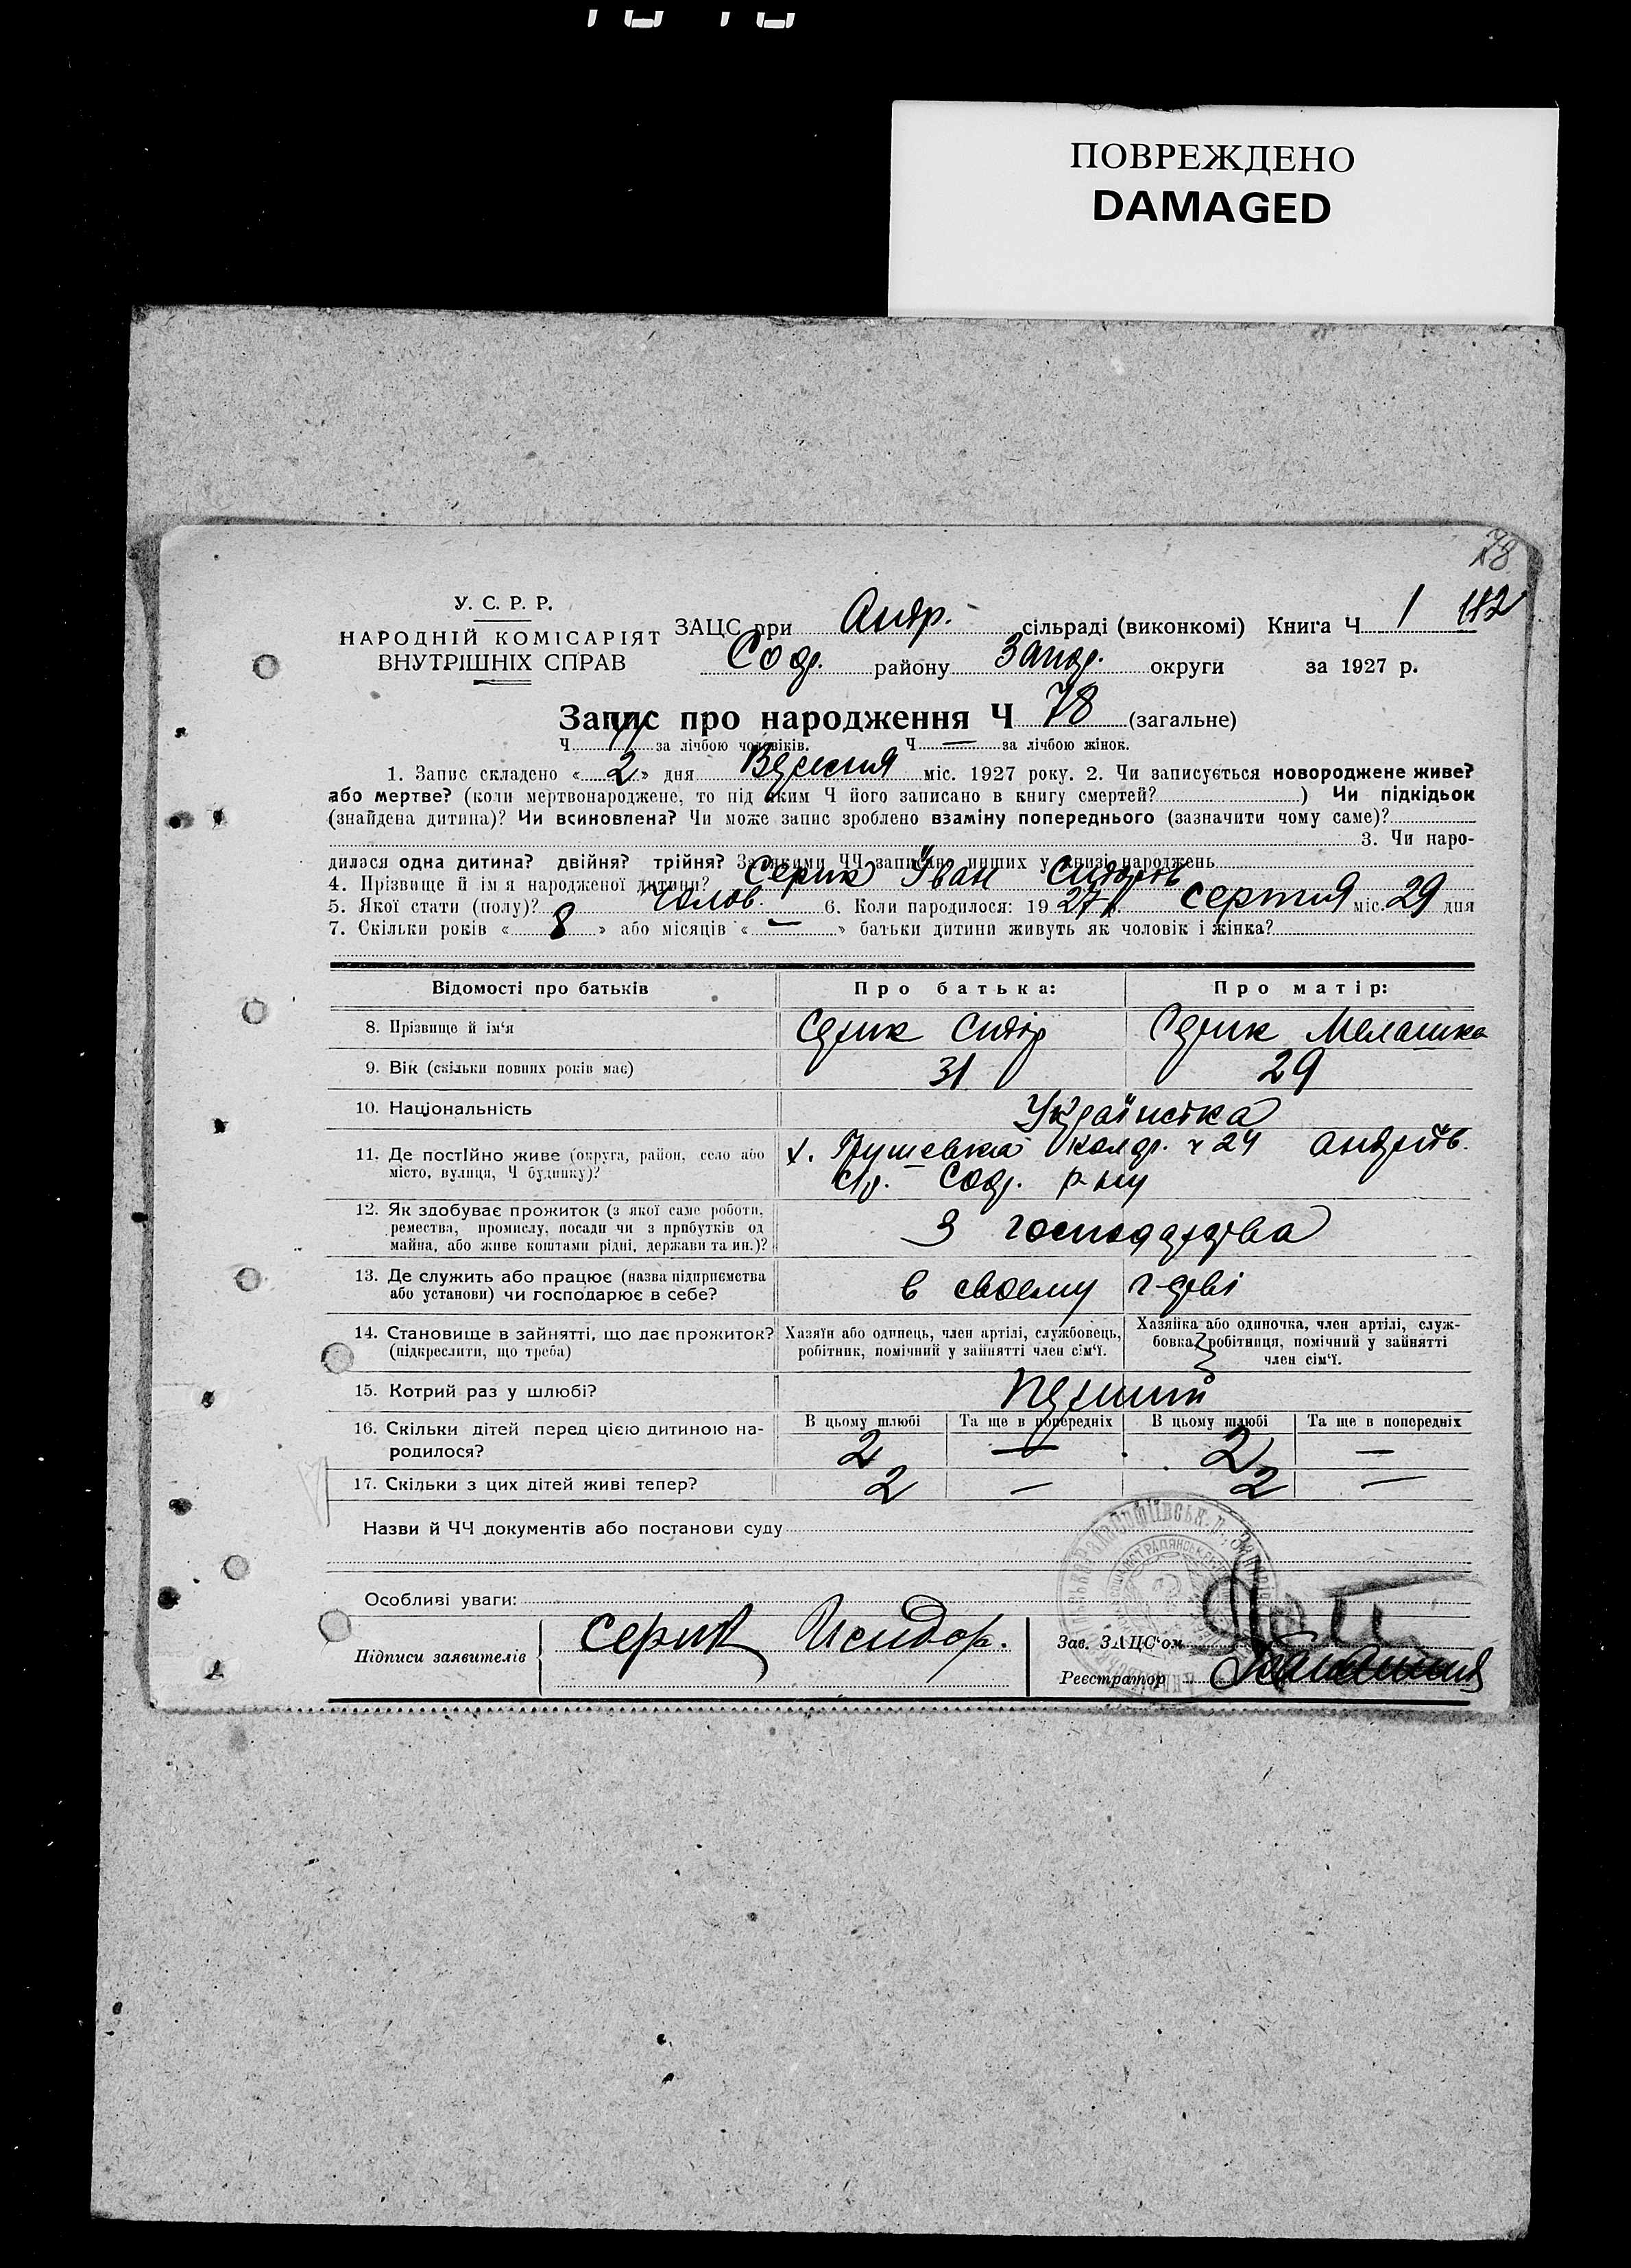 ПОВРЕЖДЕНО
DAMAGED
78
У. С. Р. Р.
НАРОДНІЙ КОМІСАРІЯТ
ВНУТРІШНІХ СПРАВ
ЗАЦС при Андр. сільраді (виконкомі) Книга Ч 1 112
Софр. району Запор. округи за 1927 р.
Запис про народження Ч 78 (загальне)
Ч за лічбою чоловіків. Ч — за лічбою жінок.
1. Запис складено « 2 » дня Вересня міс. 1927 року. 2. Чи записується новороджене живе?
або мертве? (коли мертвонароджене, то під яким Ч його записано в книгу смертей? ) Чи підкідьок
(знайдена дитина)? Чи всиновлена? Чи може запис зроблено взаміну попереднього (зазначити чому саме)?
3. Чи наро-
дилася одна дитина? двійня? трійня? За якими ЧЧ записано инших у книзі народжень
4. Прізвище й ім'я народженої дитини? Серик Іван Сидорів
5. Якої стати (полу)? Чолов. 6. Коли народилося: 19 27 р. серпня міс. 29 дня
7. Скільки років « 8 » або місяців « — » батьки дитини живуть як чоловік і жінка?
Відомості про батьків Про батька: Про матір:
8. Прізвище й ім'я Серик Сидір Серик Мелашка
9. Вік (скільки повних років має) 31 29
10. Національність Українська
11. Де постійно живе (округа, район, село або х. Грушевка ч 24
місто, вулиця, Ч будинку)? с/р. Соф. р-ну
12. Як здобуває прожиток (з якої саме роботи,
ремества, промислу, посади чи з прибутків од З господарства
майна, або живе коштами рідні, держави та ин.)?
13. Де служить або працює (назва підприємства в своему г-дві
або установи) чи господарює в себе?
14. Становище в зайнятті, що дає прожиток? Хазяїн або одинець, член артілі, службовець, Хазяйка або одиночка, член артілі, служ-
(підкреслити, що треба) робітник, помічний у зайнятті член сім'ї. бовка, робітниця, помічний у зайнятті
член сім'ї.
15. Котрий раз у шлюбі? Перший
16. Скільки дітей перед цією дитиною на- В цьому шлюбі Та ще в попередніх В цьому шлюбі Та ще в попередніх
родилося? 2 — 2 —
17. Скільки з цих дітей живі тепер? 2 — 2 —
Назви й ЧЧ документів або постанови суду
Особливі уваги:
Підписи заявителів Серик Исидор. Зав. ЗАЦС'ом
Реєстратор